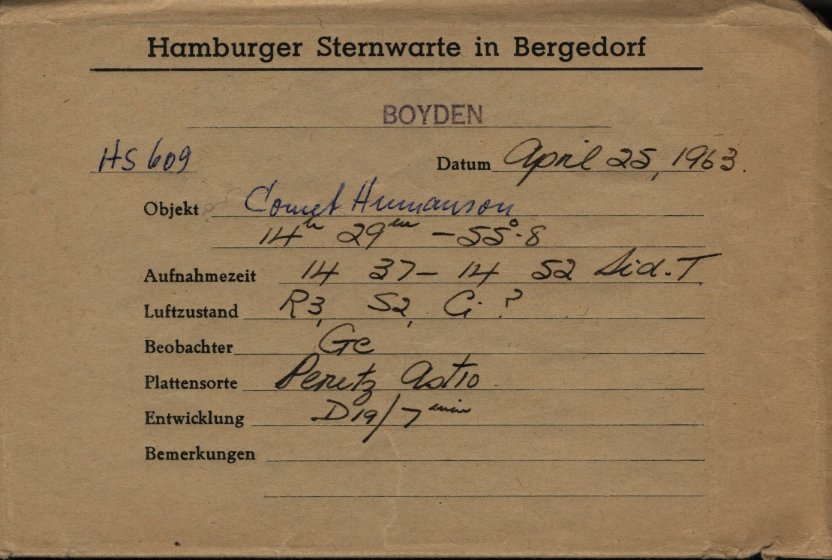 Hamburger Sternwarte in Bergedorf
BOYDEN
HS 609 Datum April 25, 1963.
Objekt Comet Humanson
14h 29m -55°.8
Aufnahmezeit 14 37 - 14 52 Sid. T.
Luftzustand R3, S2, Ci ?
Beobachter Ge
Plattensorte Perutz Astro.
Entwicklung D19/7 min
Bemerkungen